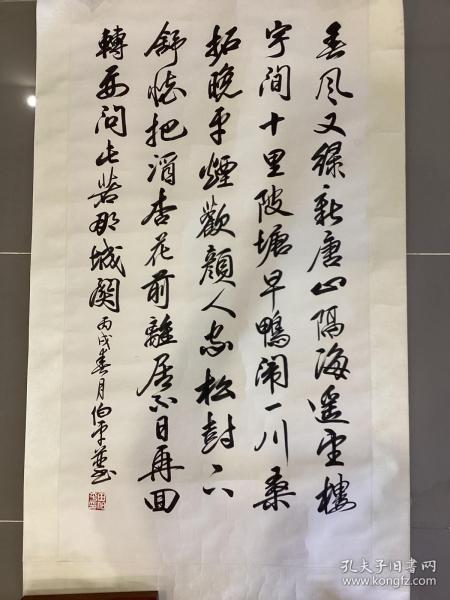 春风又绿新唐山隔海遥望楼
宇间十里陂塘早鸭闹一川桑
柘晚平烟欢颜人在松封下
舒怀把酒杏花前離居不日再回
轉再问長若那城関
丙戌春月伯平並书
孔夫子旧书网
www.kongfz.com